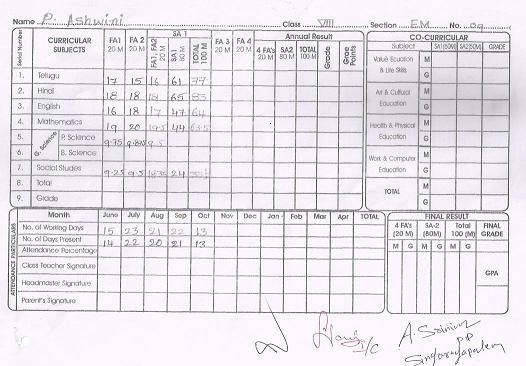 Name P. Ashwini Class VIII Section EM No. 09
Serial Number CURRICULAR SUBJECTS FA1 20 M FA 2 20 M SA 1 FA1, FA2 20 M SA 1 80 M TOTAL 100 M FA 3 20 M FA 4 20 M Annual Result 4 FA's 20 M SA2 80 M TOTAL 100 M Grade Grae Points
1. Telugu 17 15 16 61 77
2. Hindi 18 18 18 65 83
3. English 16 18 17 47 64
4. Mathematics 19 20 19.5 44 63.5
5. G. Science P. Science 9.75 9.875 9.5
6. B. Science
7. Social Studies 9.25 9.5 24
8. Total
9. Grade
CO-CURRICULAR
Subject SA1(50M) SA2(50M) GRADE
Value Ecuation & Life Skils M G
Art & Cultural Education M G
Health & Physical Education M G
Work & Computer Education M G
TOTAL M G
ATTENDANCE PARTICULARS
Month June July Aug Sep Oct Nov Dec Jan Feb Mar Apr TOTAL
No. of Working Days 15 23 21 22 13
No. of Days Present 14 22 20 21 13
Attendance Percentage
Class Teacher Signature
Headmaster Signature
Parent's Signature
FINAL RESULT
4 FA's (20 M) SA-2 (80M) Total 100 (M) FINAL GRADE
M G M G M G
GPA
I/C
A. Srinivas